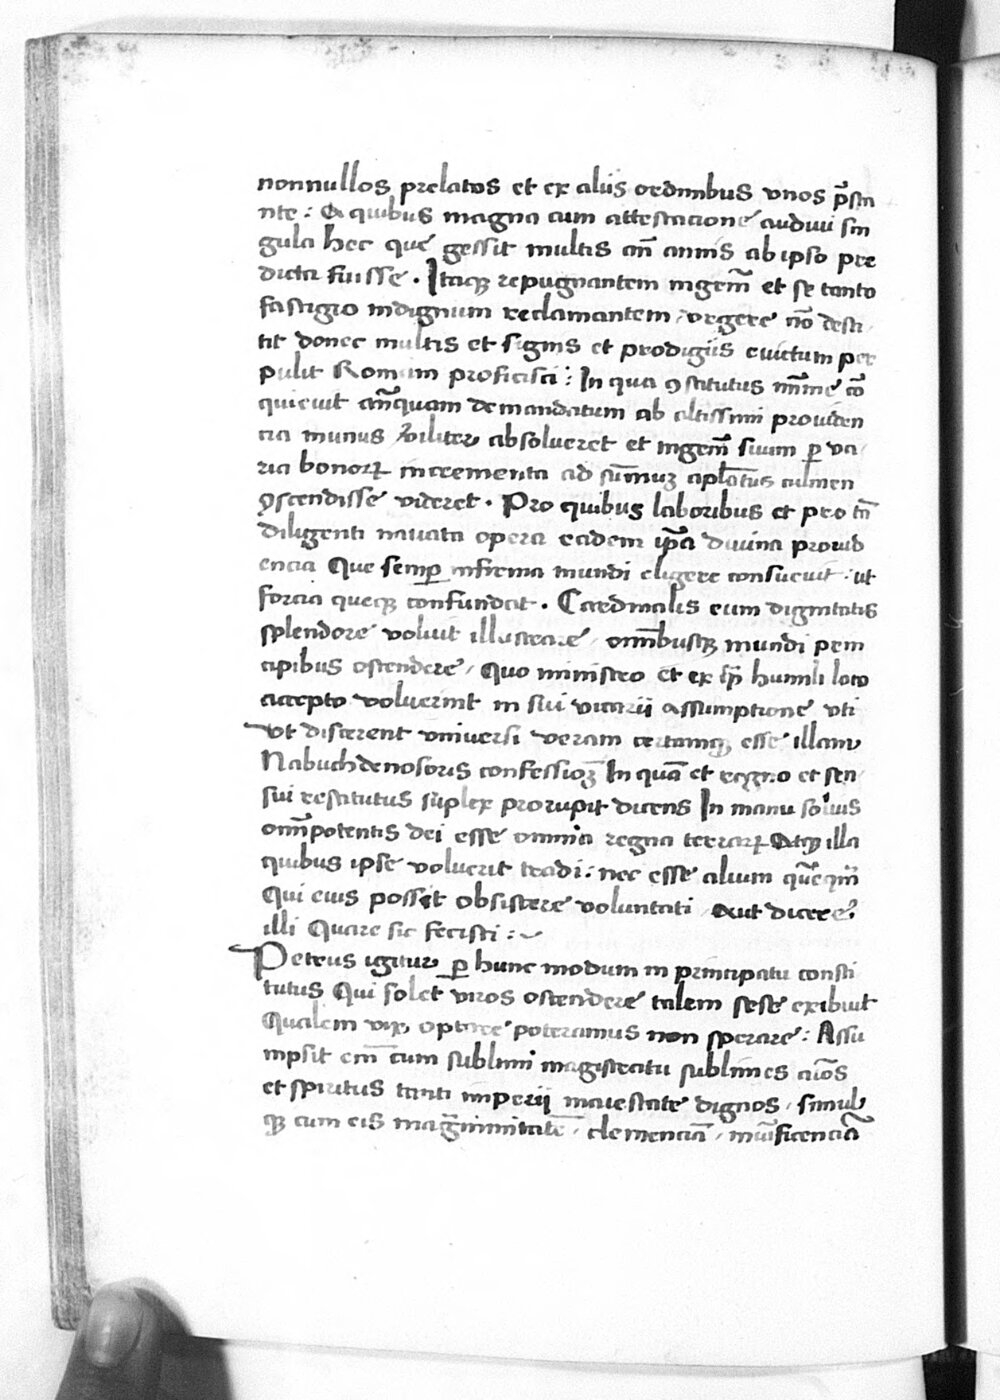 nonnullos prelatos et ex aliis ordinibus viros p̃sta
nte : A quibus magna cum attestacione audiui sin
gula hec que gessit multis añ annis ab ipso pre
dicta fuisse . Itaqꝫ repugnantem ingem̃ et se tanto
fastigio indignum reclamantem / vrgere nõ desti /
tit donec multis et signis et prodigiis euictum per
pulit Romam proficisci : In qua ꝯstitutus mĩme cõ
quieuit añquam demandatum ab altissimi prouiden
cia munus viriliter absolueret et ingem̃ suum ꝑ va /
ria bonoꝝ incrementa ad sum̃uꝫ apl̃atus culmen
ꝯscendisse videret . Pro quibus laboribus et pro tã
diligenti nauata opera eadem ip̃a diuina prouid
encia Que semꝑ infirma mundi eligere consueuit : ut
forcia queqꝫ confundat . Cardinalis eum dignitatis
splendore voluit illustrare / omñibusqꝫ mundi prin
cipibus ostendere / Quo ministro et ex q̃ꝫ humili loco
accepto voluerint in sui vicarii assumptione vti
Vt discerent vniuersi veram certamqꝫ esse illam
Nabuchdenosoris confessioꝫ In quã et regno et sen /
sui restitutus sũplex prorupit dicens In manu solius
om̃ipotentis dei esse omnia regna terraꝝ Atqꝫ illa
quibus ipse voluerit tradi : nec esse alium quẽqm̃
Qui eius possit obsistere voluntati / Aut dicere
illi Quare sic fecisti :
Petrus igitur ꝑ hunc modum in principatu consti
tutus Qui solet viros ostendere talem sese exibuit
Qualem vix optare poteramus non sperare : Assu
mpsit em̃ cum sublimi magistratu sublimes aĩos
et spiritus tanti imperii maiestate dignos / simul
qꝫ cum eis mag̃nimitatẽ / clemenciã / mũificenciã